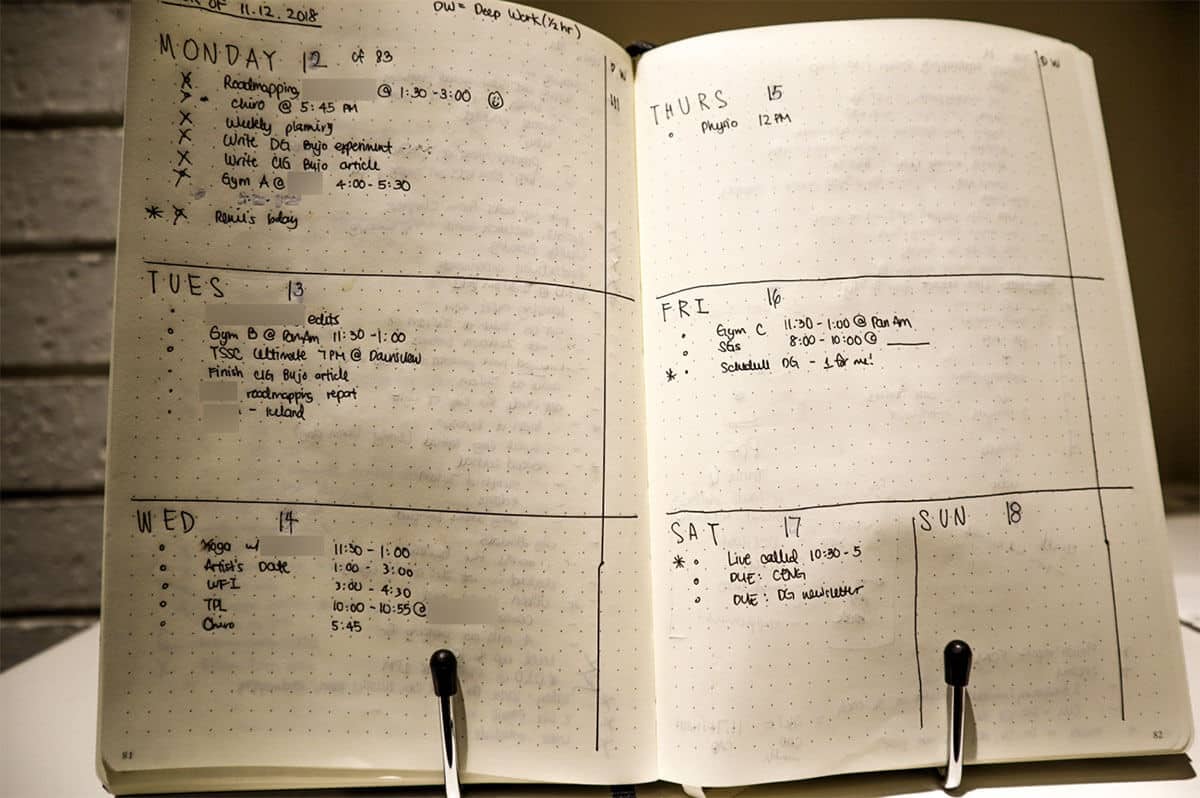 OF 11.12.2018
DW = Deep Work (1/2 hr)
MONDAY 12 of 83
DW
X Roadmapping @ 1:30-3:00
X chiro @ 5:45 PM
X Weekly planning
X Write DG Bujo experiment
X Write CIG Bujo article
X Gym A @ 4:00-5:30
* X bday
TUES 13
edits
Gym B @ PanAm 11:30-1:00
TSSC Ultimate 7PM @ Downsview
Finish CIG Bujo article
roadmapping report
- Iceland
WED 14
Yoga w/ 11:30-1:00
Artist's Date 1:00-3:00
WFI 3:00-4:30
TPL 10:00-10:55 @
Chiro 5:45
81
DW
THURS 15
Physio 12PM
FRI 16
Gym C 11:30-1:00 @ Pan Am
SGs 8:00-10:00 @ ____
* Schedule DG - 1 for me!
SAT 17
* Live called 10:30-5
DUE: CENG
DUE: DG newsletter
SUN 18
82